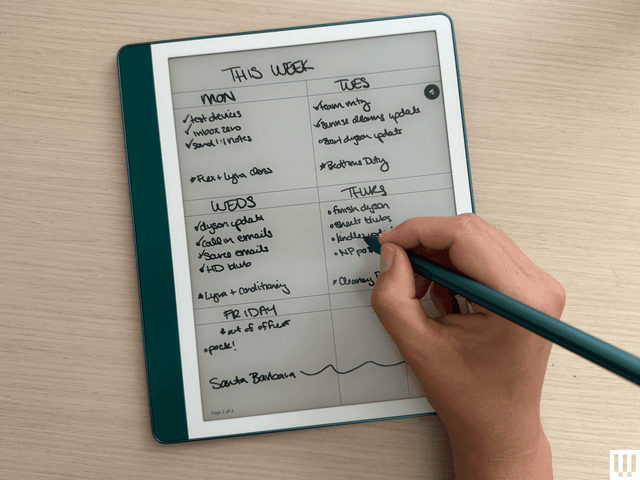 THIS WEEK
MON
test devices
inbox zero
send 1:1 notes
*Flex + Lyra class
TUES
team mtg
sunrise alarms update
start dyson update
*Bedtime Duty
WEDS
dyson update
call in emails
Source emails
HD blurb
*Lyra + conditioning
THURS
finish dyson
sheets blurbs
kindle
NP
*Cleaning
FRIDAY
*out of office
pack!
Santa Barbara
Page 2 of 2
W